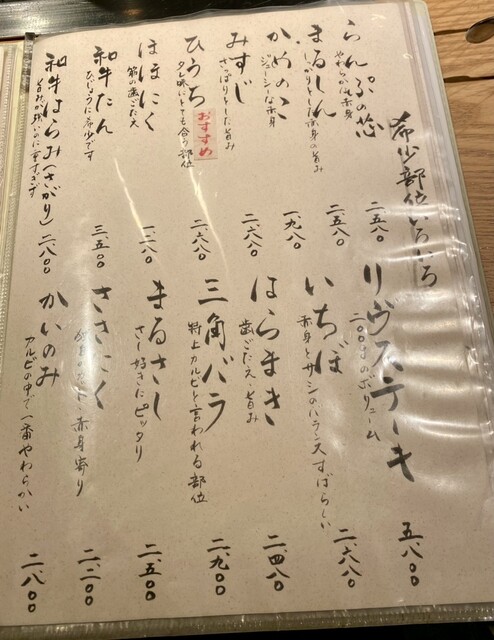 希少部位いろいろ
らんぷの芯
やわらかい赤身
二、五八〇
まるしん
しっかりとした赤身の旨み
二、五八〇
かめのこ
ジューシーな赤身
一、九八〇
みすじ
さっぱりとした旨み
二、六八〇
ひうち
おすすめ
タレ、味ともに合う部位
二、六八〇
ほほにく
筋の歯ごたえ
一、二八〇
和牛たん
ひじょうに希少です
三、五〇〇
和牛はらみ(さがり)
旨みが強いのに重すぎず
二、八〇〇
リヴステーキ
二〇〇gのボリューム
五、八〇〇
いちぼ
赤身とサシのバランスすばらしい
二、六八〇
はらまき
歯ごたえ、旨み
二、四八〇
三角バラ
特上カルビと言われる部位
二、九〇〇
まるさし
さし好きにピッタリ
二、五〇〇
ささにく
赤身寄り
二、二〇〇
かいのみ
カルビの中で一番やわらかい
二、八〇〇